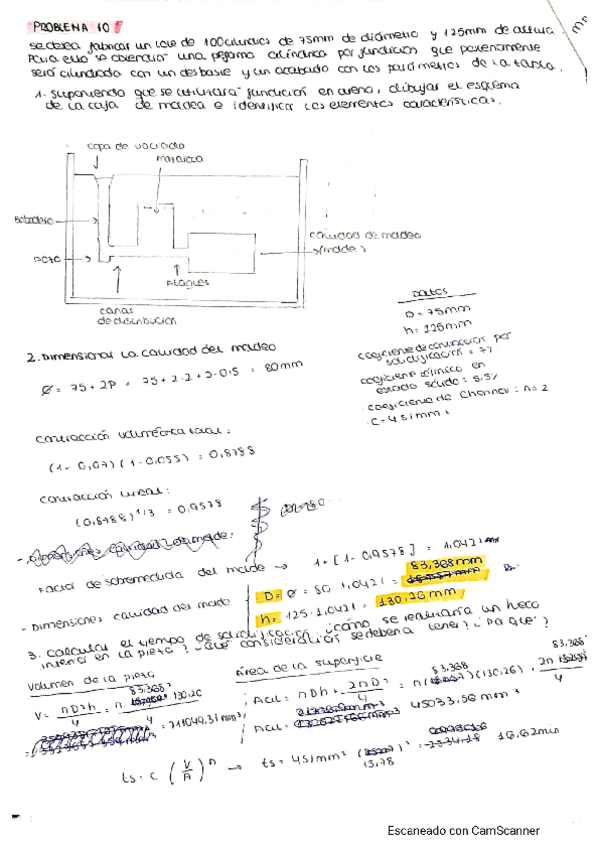 PROBLEMA 10
se desea fabricar un lote de 100 cilindros de 75mm de diámetro y 125mm de altura.
Para ello se obtendrá una preforma cilíndrica por fundición que posteriormente
será cilindrada con un desbaste y un acabado con los parámetros de la tabla.
1- suponiendo que se utilizará fundición en arena, dibujar el esquema
de la caja de moldeo e identificar los elementos característicos.
copa de vaciado
mazarota
Bebedero
cavidad de moldeo
(molde)
Pozo
Ataques
canal
de distribución
DATOS
D = 75mm
h = 125mm
coeficiente de contracción por
solidificación = 7%
coeficiente térmico en
estado sólido: 5,5%
coeficiente de Chorinov: n = 2
C = 4 s/mm²
2. Dimensionar la cavidad del moldeo
Ø = 75 + 2P = 75 + 2·2 + 2·0,5 = 80mm
contracción volumétrica total:
(1 - 0,07)(1 - 0,055) = 0,8788
contracción lineal:
(0,8788)^1/3 = 0,9578
Factor de sobremedida del molde → 1 + [1 - 0,9578] = 1,0421
- Dimensiones cavidad del molde
D = Ø = 80 · 1,0421 = 83,368mm
h = 125 · 1,0421 = 130,26mm
3. Calcular el tiempo de solidificación ¿cómo se realizaría un hueco
interno en la pieza? ¿Qué consideración se debería tener? ¿Pa qué?
Volumen de la pieza
V = πD²h/4 = π · 83,368²/4 · 130,26
= 711049,31 mm³
Área de la superficie
Acil = πDh + 2πD²/4 = π(83,368)(130,26) + 2π 83,368
Acil = 45033,56 mm²
ts = C (V/A)^n → ts = 4 s/mm² (15,78)² = 16,62min
Escaneado con CamScanner